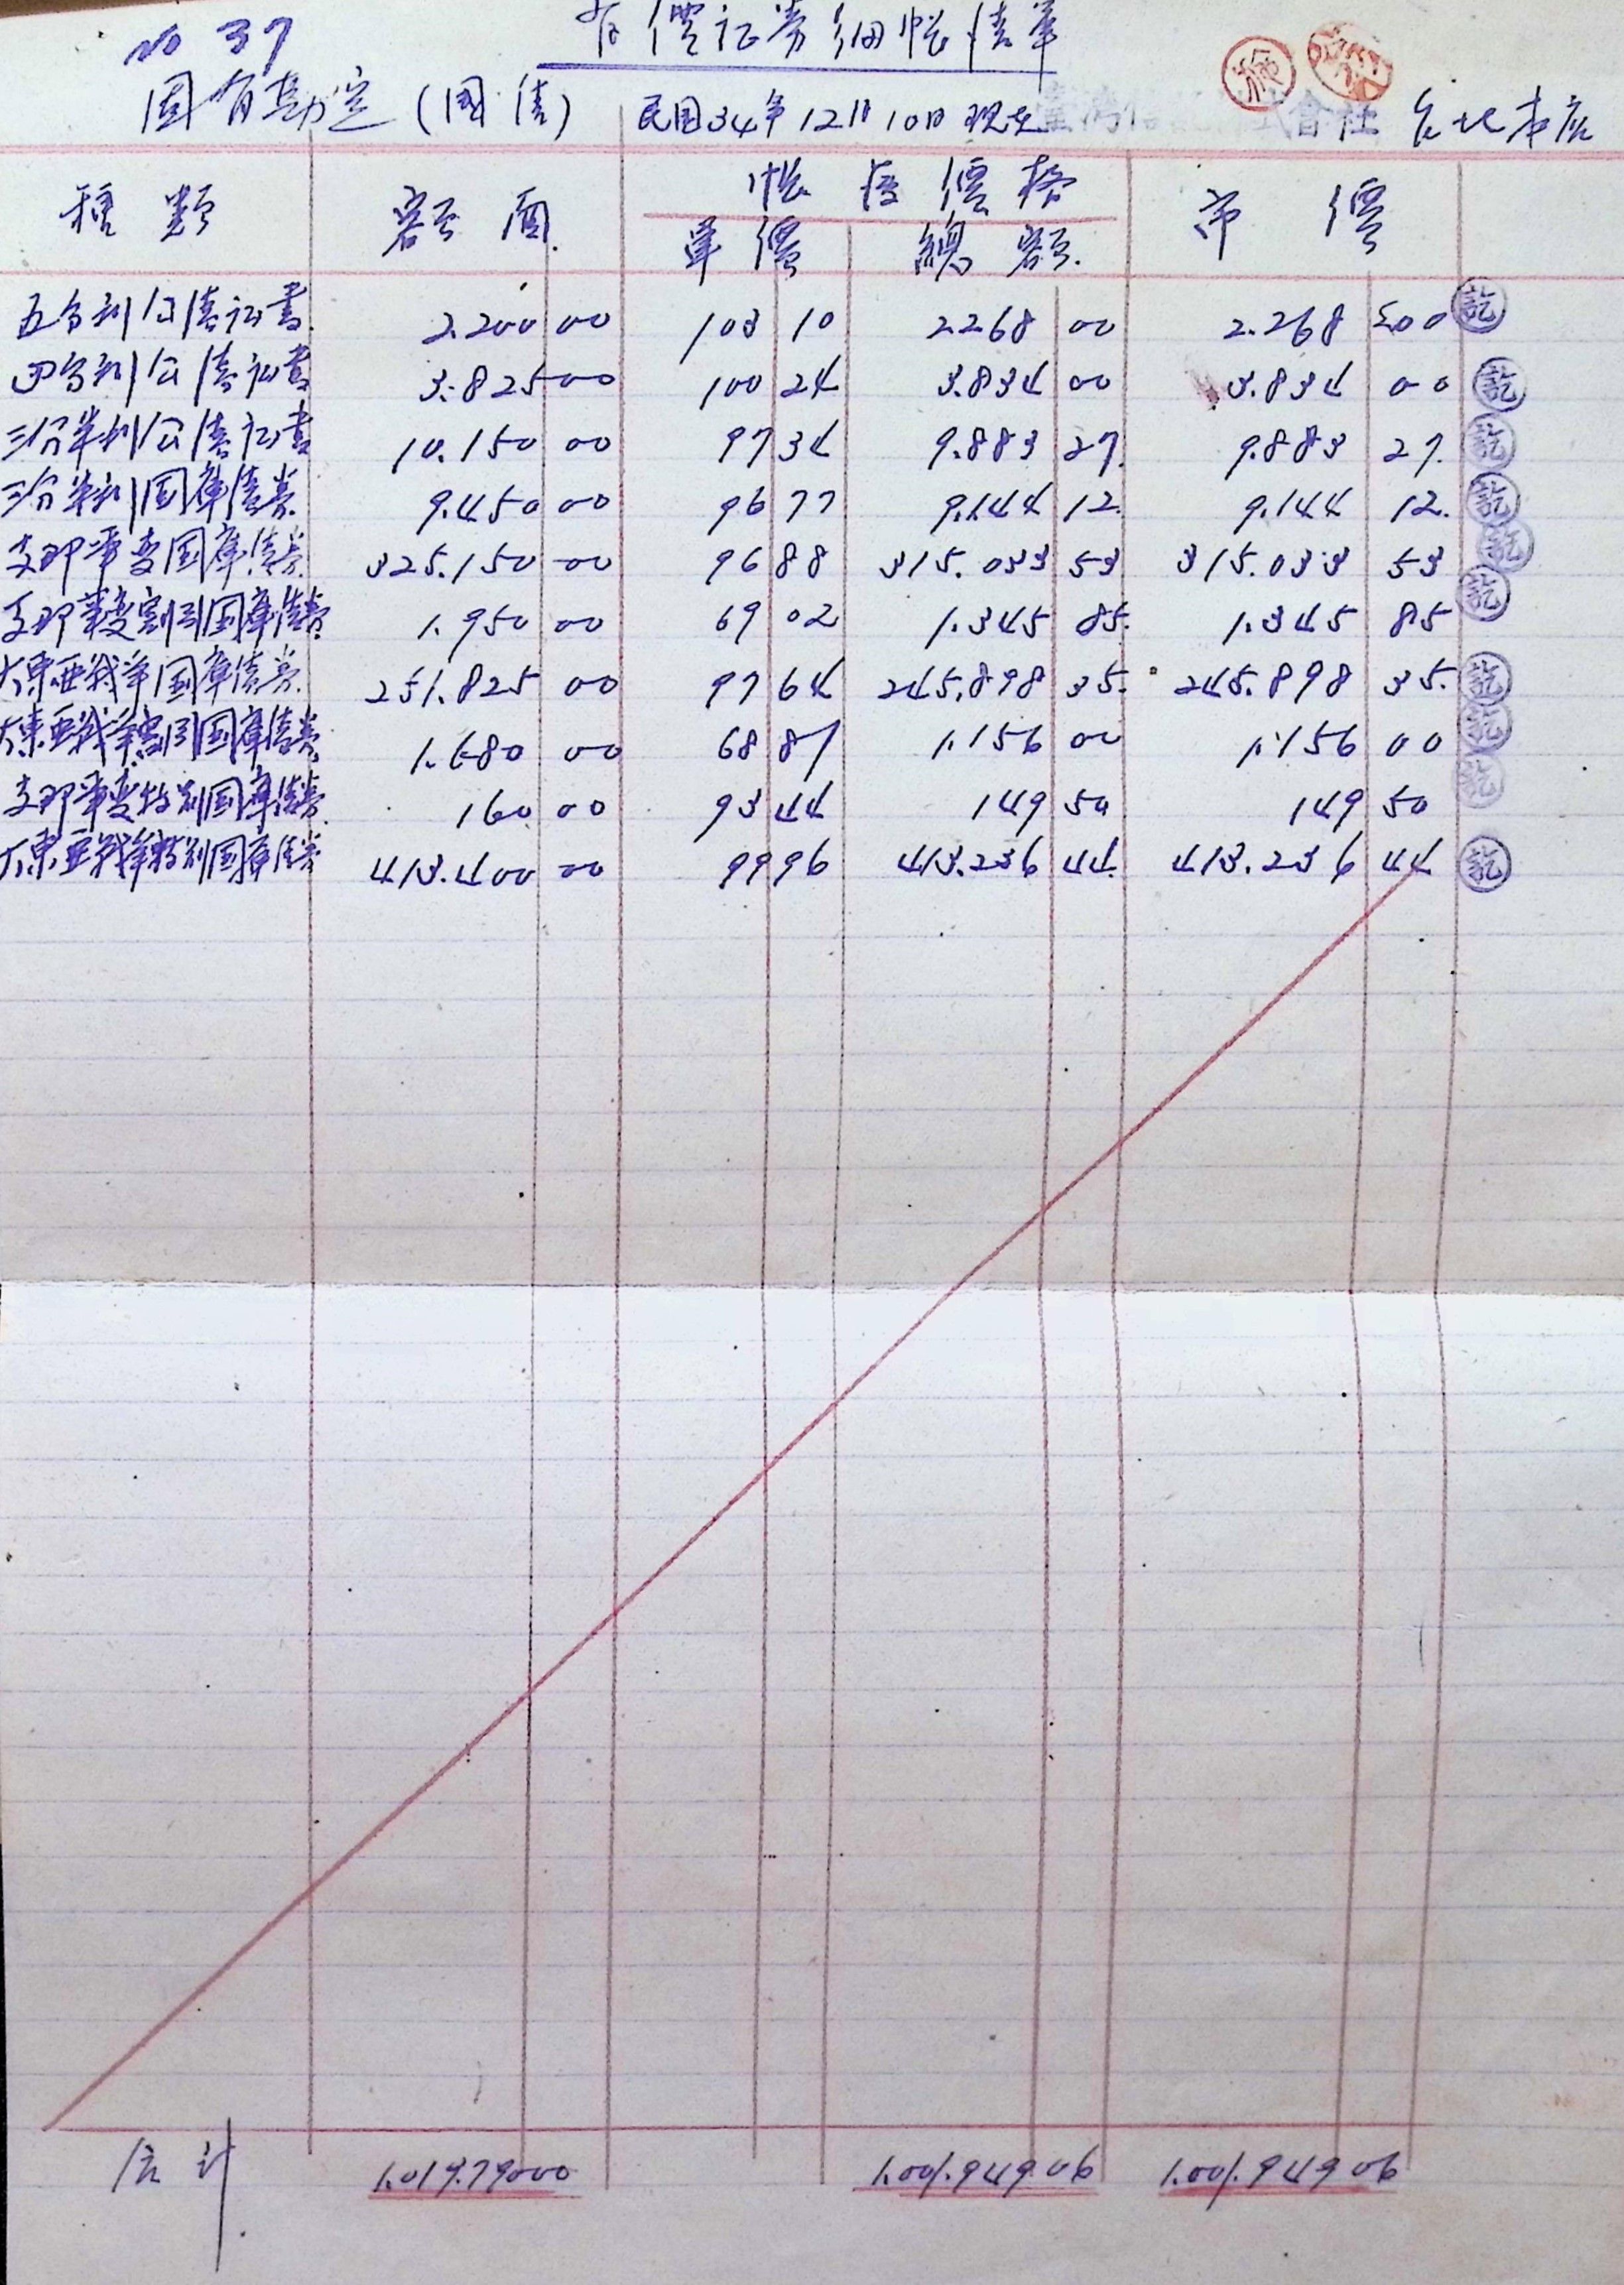 No 37
有價証券細帳清單
固有勘定(國債) 民国34年12月10日現在 會社 台北本店
種類 額面 帳簿價格 市價
單價 總額
五分利公債証書 2.200 00 103 10 2.268 00 2.268 00 訖
四分利公債証書 3.825 00 100 24 3.834 00 3.834 00 訖
三分半利公債証書 10.150 00 97 34 9.883 27 9.883 27 訖
三分半利国庫債券 9.450 00 96 77 9.144 12 9.144 12 訖
支那事変国庫債券 325.150 00 96 88 315.033 53 315.033 53 訖
支那事変割引国庫債券 1.950 00 69 02 1.345 85 1.345 85 訖
大東亜戦争国庫債券 251.825 00 97 64 245.898 35 245.898 35 訖
大東亜戦争割引国庫債券 1.680 00 68 81 1.156 00 1.156 00 訖
支那事変特別国庫債券 160 00 93 44 149 50 149 50 訖
大東亜戦争特別国庫債券 413.400 00 99 96 413.236 44 413.236 44 訖
合計 1.019.790 00 1.001.949.06 1.001.949 06